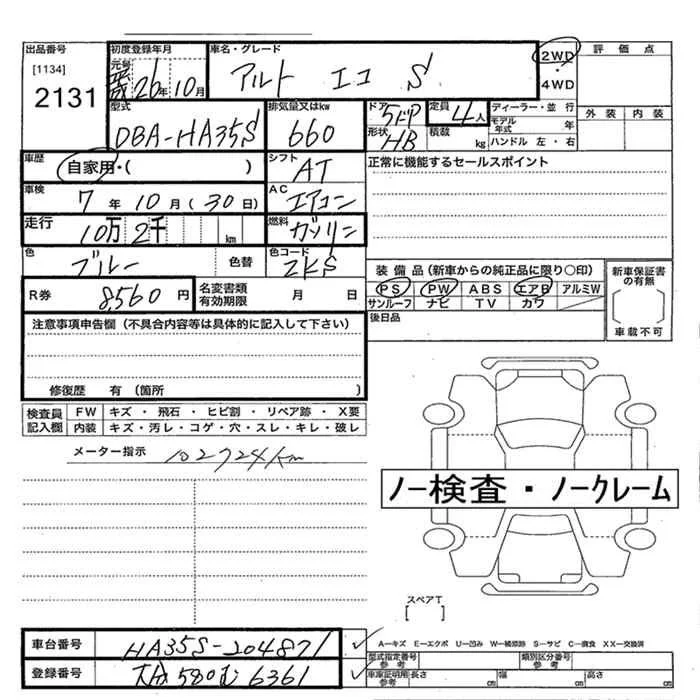 出品番号 初度登録年月 車名・グレード 2WD 評価点
[1134] 元号 平成 26年 10月 アルト エコ S ・
2131 4WD
型式 排気量又はkw ドア 5ドア 定員 4人 ディーラー・並行 外装 内装
DBA-HA35S 660 形状 HB 積載 kg モデル年式 年
ハンドル 左・右
車歴 自家用・( ) シフト AT 正常に機能するセールスポイント
車検 7年 10月 (30日) AC エアコン
走行 10万 2千 km 燃料 ガソリン
色 ブルー 色替 色コード ZKS 装備品(新車からの純正品に限り○印) 新車保証書の有無
R券 8,560円 名変書類有効期限 月 日 PS PW ABS エアB アルミW
サンルーフ ナビ TV カワ [ ]
注意事項申告欄(不具合内容等は具体的に記入して下さい) 後日品 車載不可
修復歴 有(箇所 )
検査員 FW キズ・飛石・ヒビ割・リペア跡・X要
記入欄 内装 キズ・汚レ・コゲ・穴・スレ・キレ・破レ
メーター指示 102724km
ノー検査・ノークレーム
スペアT
[ ]
車台番号 HA35S-204871 A−キズ E−エクボ U−凹み W−補修跡 S−サビ C−腐食 XX−交換済
型式指定番号 参考 類別区分番号 参考
登録番号 580 む 6361 車庫証明用 参考 長さ cm 幅 cm 高さ cm